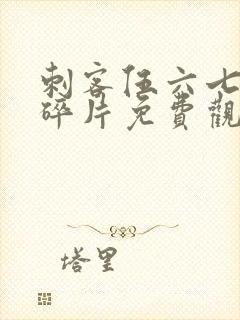 刺客伍六七
碎片免費觀
塔里